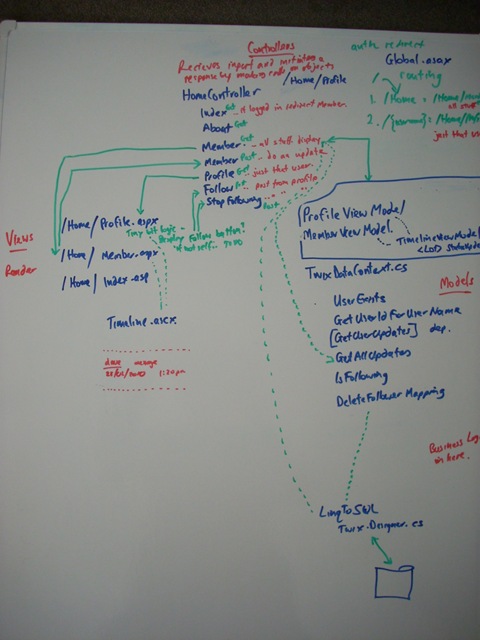 Controllers
Recieves input and initiates a
response by making calls on objects
/Home/Profile
HomeController
Index Get .. if logged in redirect Member.
About Get
Member Get .. all stuff display
Member Post .. do an update
Profile Get .. just that user
Follow Post .. post from profile
Stop Following Post " " "
auth redirect
Global.asax
/ routing
1. /Home = /Home/
all stuff
2. /{username} = /Home/
just that
Views
Render
/Home/Profile.aspx
Tiny bit logic -
Display Follow button?
if not self.. TODO
/Home/ Member.aspx
/Home/ Index.asp
Timeline.ascx
dave message
1:20pm
Profile View Model/
Member View Model.
TimelineViewModel
<LOD> Status
TwixDataContext.cs
Models
UserExists
GetUserIdForUserName
[GetUserUpdates] dep.
GetAllUpdates
IsFollowing
DeleteFollower Mapping
Business Log
in here.
LinqToSQL
Twix.Designer.cs